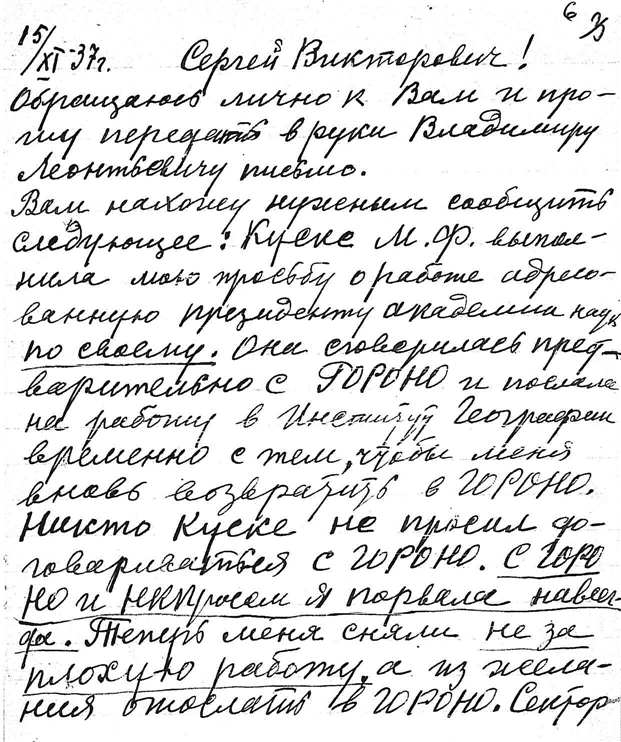 6
15/XI-37г. Сергей Викторович!
Обращаюсь лично к Вам и про-
шу передать в руки Владимиру
Леонтьевичу письмо.
Вам нахожу нужным сообщить
следующее: Куске М.Ф. выпол-
нила мою просьбу о работе адресо-
ванную президенту академии наук
по своему. Она сговорилась пред-
варительно с ГОРОНО и послала
на работу в Институт Географии
временно с тем, чтобы меня
вновь возвратить в ГОРОНО.
Никто Куске не просил до-
говариваться с ГОРОНО. С ГОРО
НО и НКПросом я порвала навсег-
да. Теперь меня сняли не за
плохую работу, а из жела-
ния отослать в ГОРОНО. Сектор